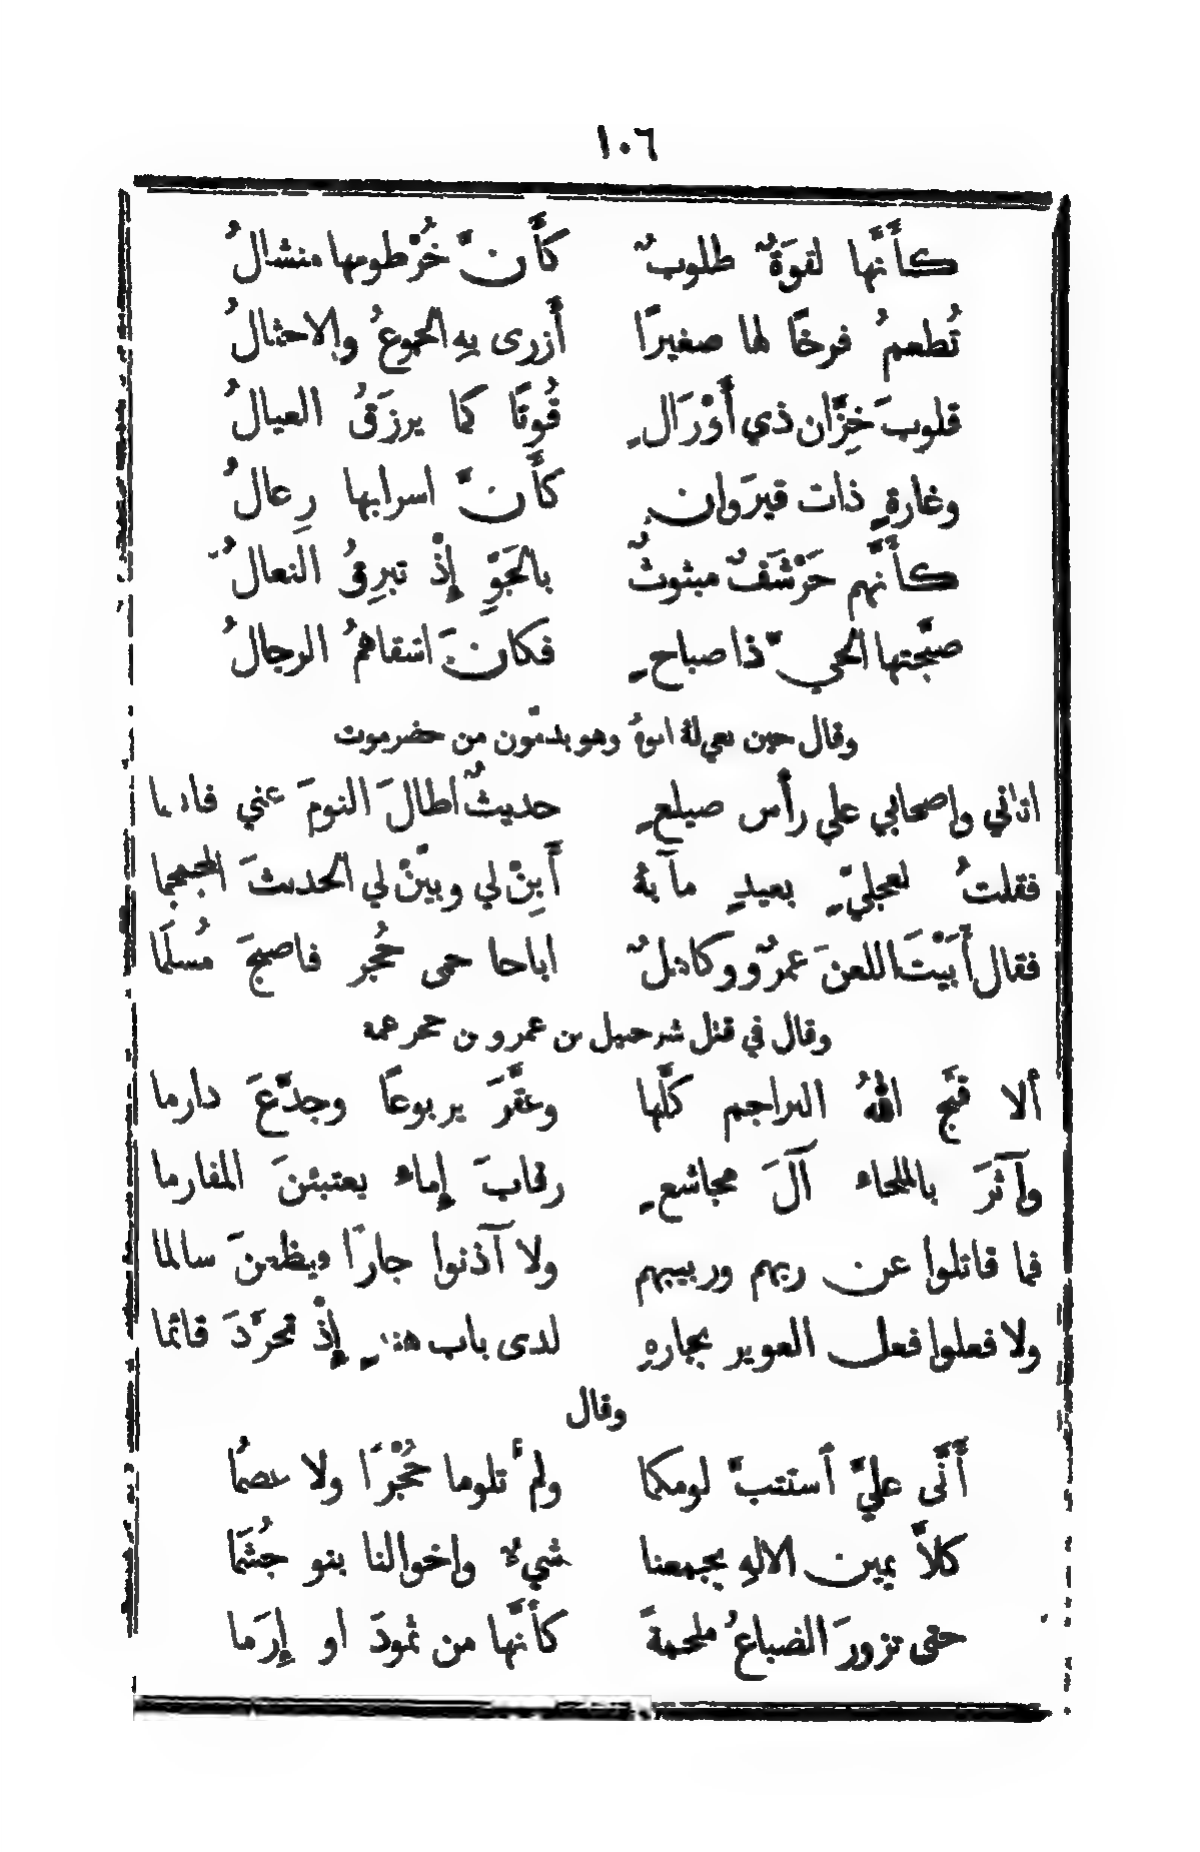 ١٠٦
كأَنَّها لقوَةٌ طلوبٌ كأَنَّ خُرْطومها منشالُ
تُطعمُ فرخًا لها صغيرًا أَزرى بِهِ الجوعُ والاحثالُ
قلوبَ خِزَّان ذي أَوْرَالٍ قُوتًا كما يرزَقُ العيالُ
وغارةٍ ذات قيرَوانٍ كأَنَّ اسرابها رِعالُ
كأَنَّهم حَرْشَفٌ مبثوثٌ بالجَوِّ إِذْ تبرِقُ النعالُ
صبَّحتها الحيَّ ذا صباحٍ فكانَ اشقاهمُ الرجالُ
وقال حين نعي له ابوهُ وهو بدمّون من حضرموت
اتاني واصحابي على رأس صيلعٍ حديثٌ اطالَ النومَ عني فانعما
فقلتُ لعجليٍّ بعيدٍ مآبهُ أَبِنْ لي وبيّنْ لي الحديثَ المجمجما
فقال أَبَيْتَ اللعنَ عمرٌو وكاهلٌ اباحا حمى حُجرٍ فاصبحَ مُسلَما
وقال في قتل شرحبيل بن عمرو بن حجر عمه
ألا قبَّح اللهُ البراجم كلَّها وعقَّرَ يربوعًا وجدَّعَ دارما
وآثرَ بالملحاء آلَ مجاشعٍ رقابَ إِماء يعتبئنَ المفارما
فما قاتلوا عن ربهم وربيبهم ولا آذنوا جارًا فيظعنَ سالما
ولا فعلوا فعل العوير بجارهِ لدى باب هندٍ إِذْ تجرَّدَ قائما
وقال
أَنَّى عليَّ أستتبَّ لومكما ولمْ تلوما حُجْرًا ولا عصُما
كلاَّ يمين الالهِ يجمعنا شيءٌ واخوالنا بنو جُشَما
حتى تزورَ الضباعُ ملحمةً كأَنَّها من ثمودَ او إِرَما